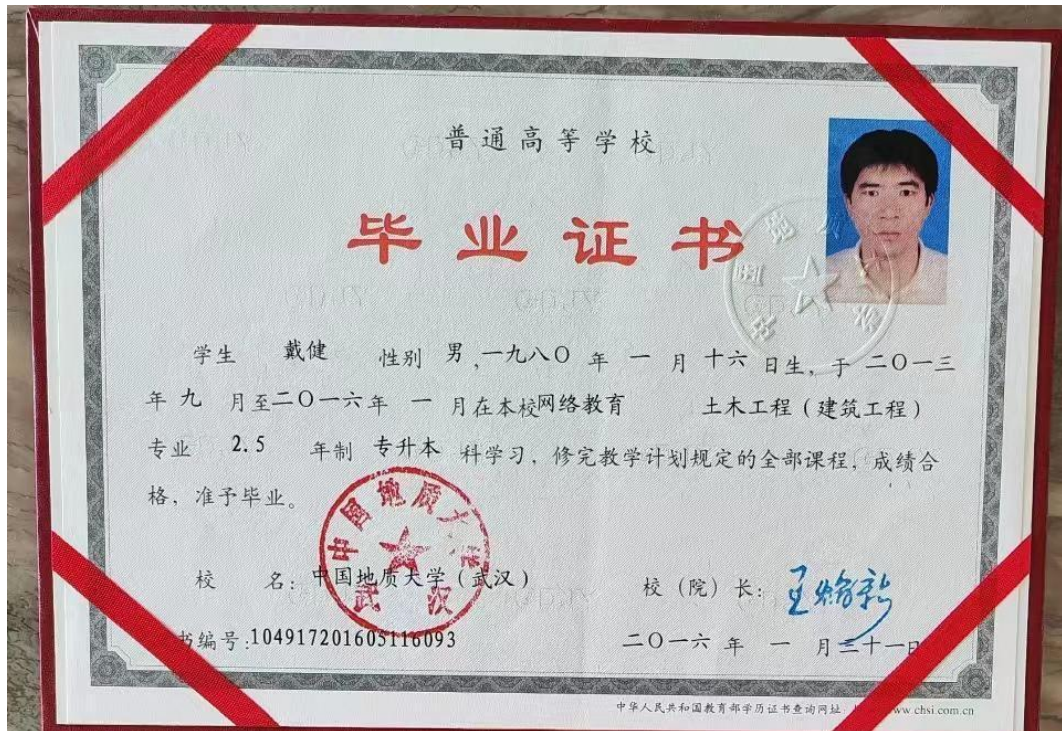 普通高等学校
毕业证书
学生 戴健 性别 男,一九八〇年 一 月 十六 日生, 于 二〇一三
年 九 月至二〇一六年 一 月在本校网络教育 土木工程(建筑工程)
专业 2.5 年制 专升本 科学习, 修完教学计划规定的全部课程, 成绩合
格, 准予毕业。
中国地质大学
武汉
校 名: 中国地质大学(武汉) 校(院)长:
书编号:104917201605116093 二〇一六 年 一 月三十一日
中华人民共和国教育部学历证书查询网址: www.chsi.com.cn